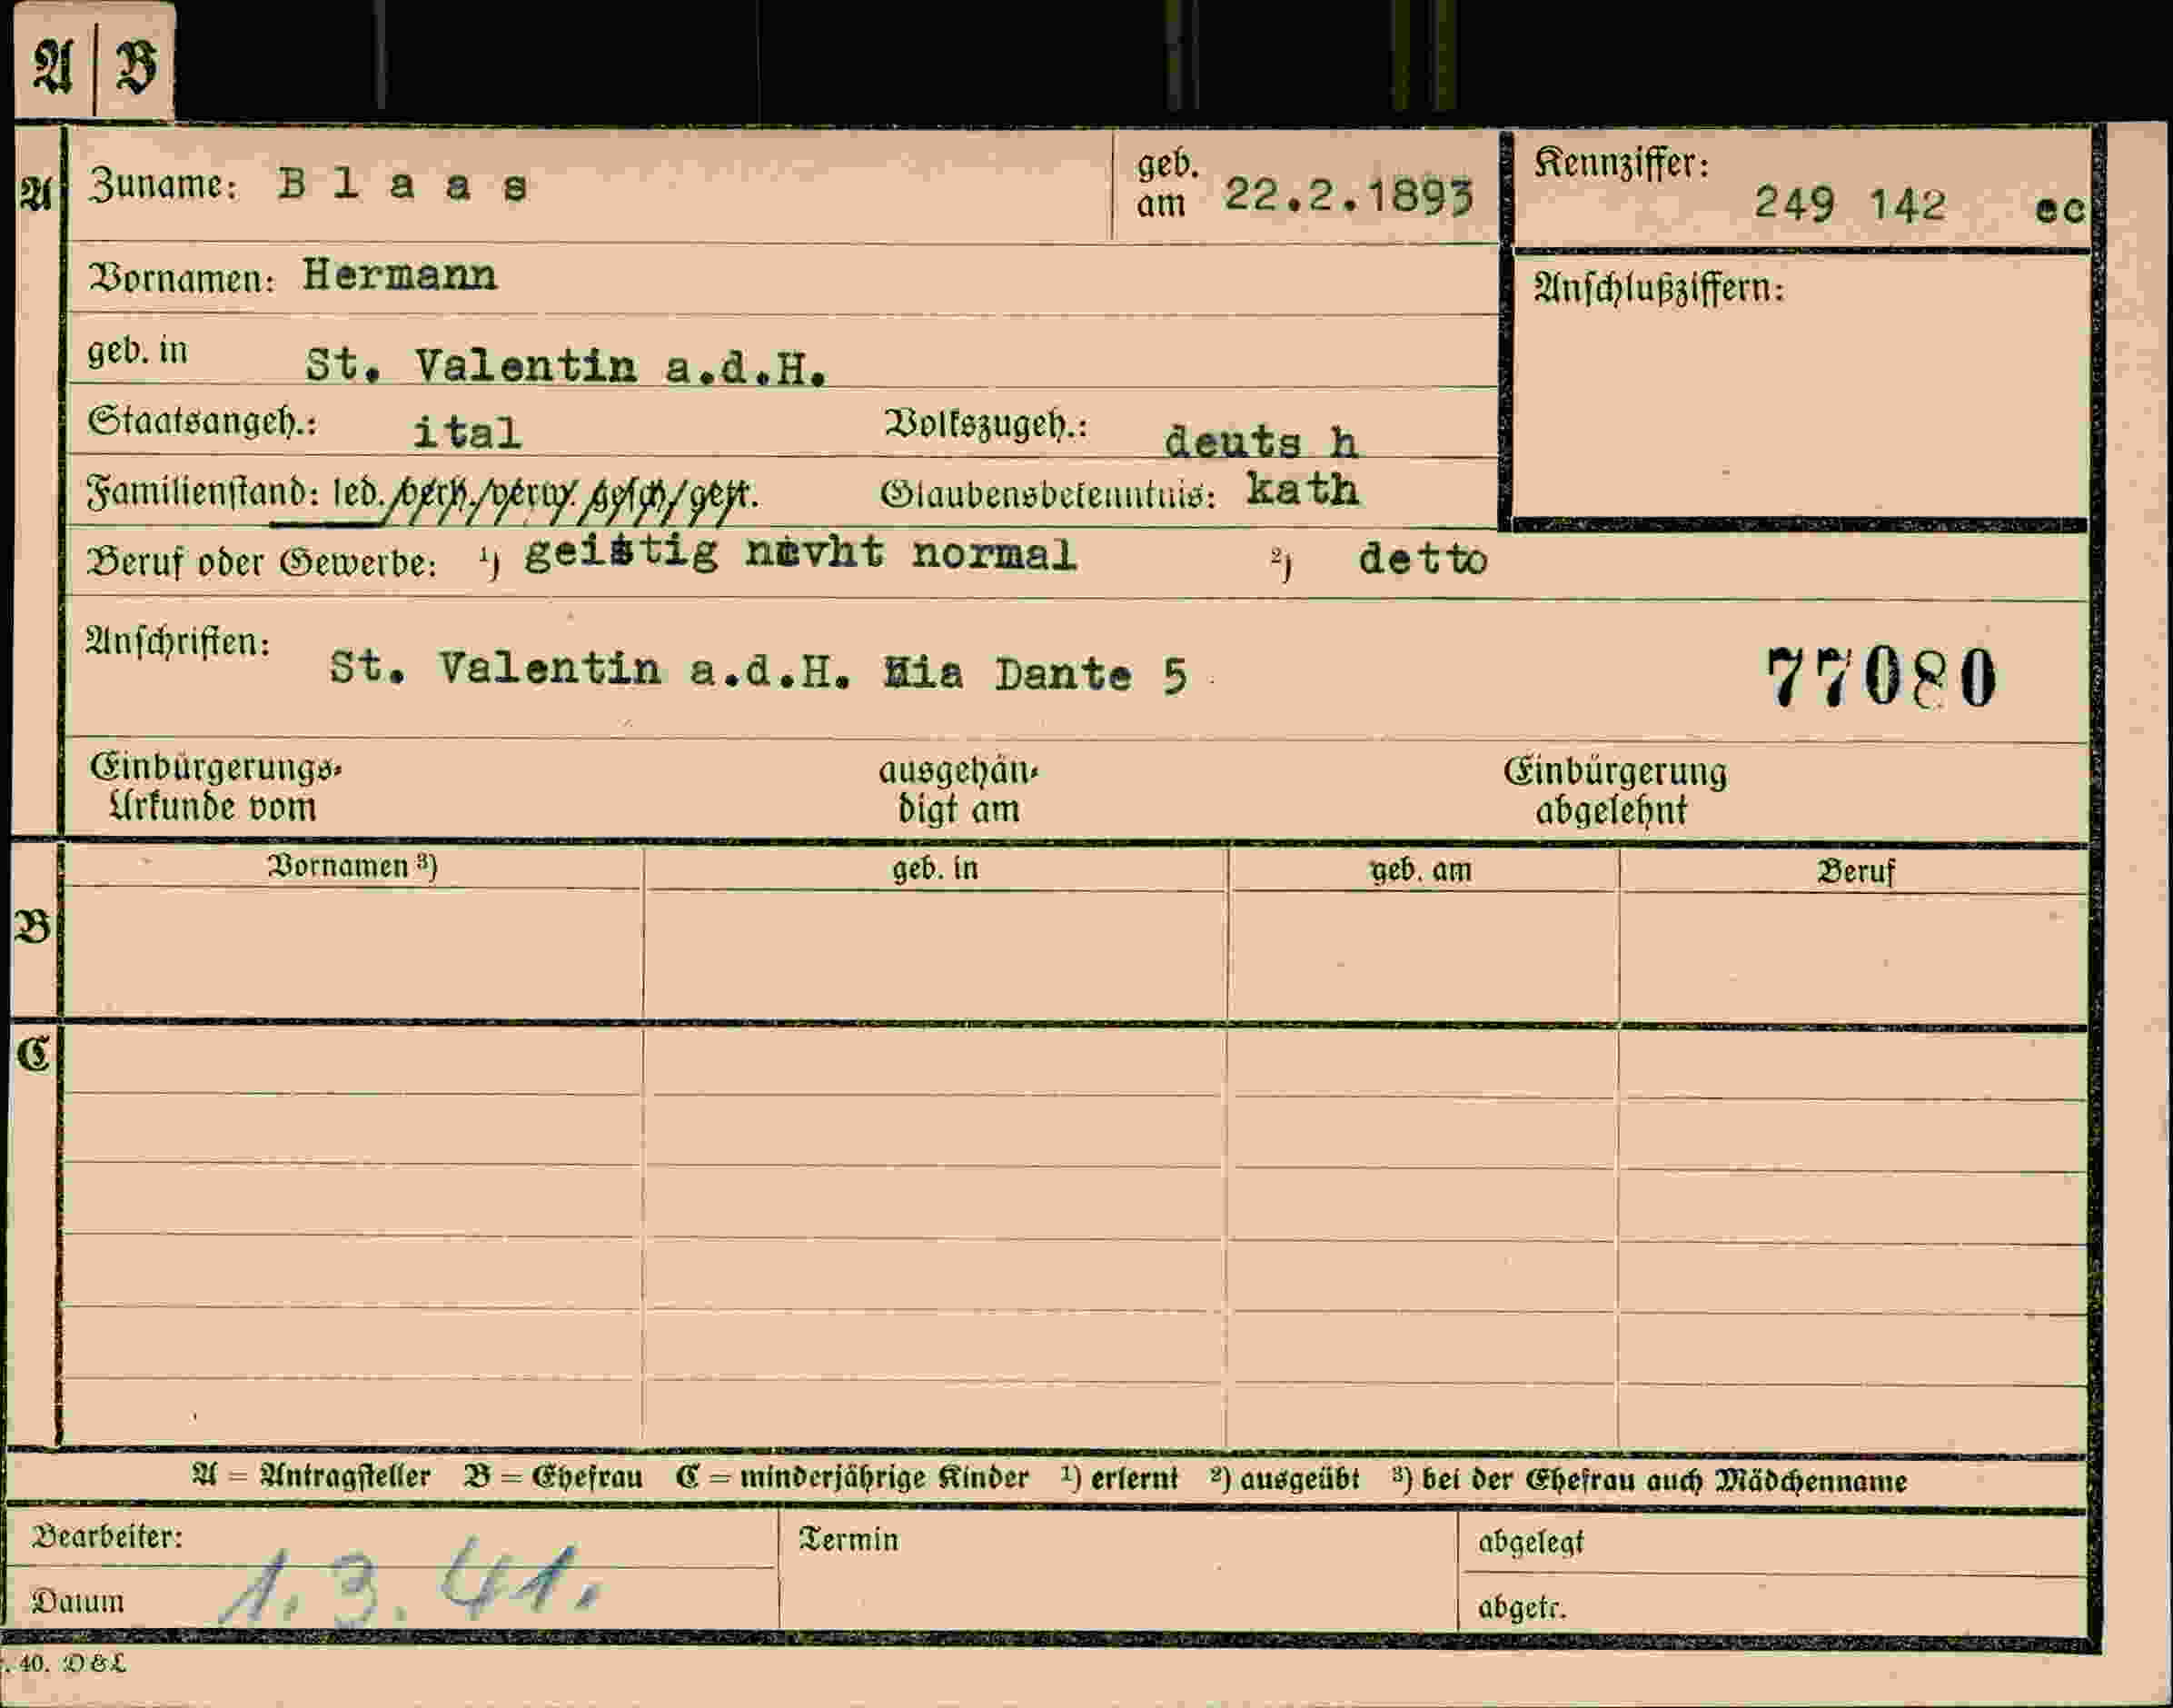 A | B
A
Zuname: B l a a s
geb. am 22.2.1893
Kennziffer: 249 142 ec
Vornamen: Hermann
Anschlußziffern:
geb. in St. Valentin a.d.H.
Staatsangeh.: ital Volkszugeh.: deuts h
Familienstand: led./verh./verw./gesch./getr. Glaubensbekenntnis: kath
Beruf oder Gewerbe: ¹) geistig nevht normal ²) detto
Anschriften: St. Valentin a.d.H. Via Dante 5
77080
Einbürgerungs-Urkunde vom
ausgehändigt am
Einbürgerung abgelehnt
Vornamen ³) geb. in geb. am Beruf
B
C
A = Antragsteller B = Ehefrau C = minderjährige Kinder ¹) erlernt ²) ausgeübt ³) bei der Ehefrau auch Mädchenname
Bearbeiter:
Termin
abgelegt
Datum 1.3.41.
abgetr.
. 40. D & L